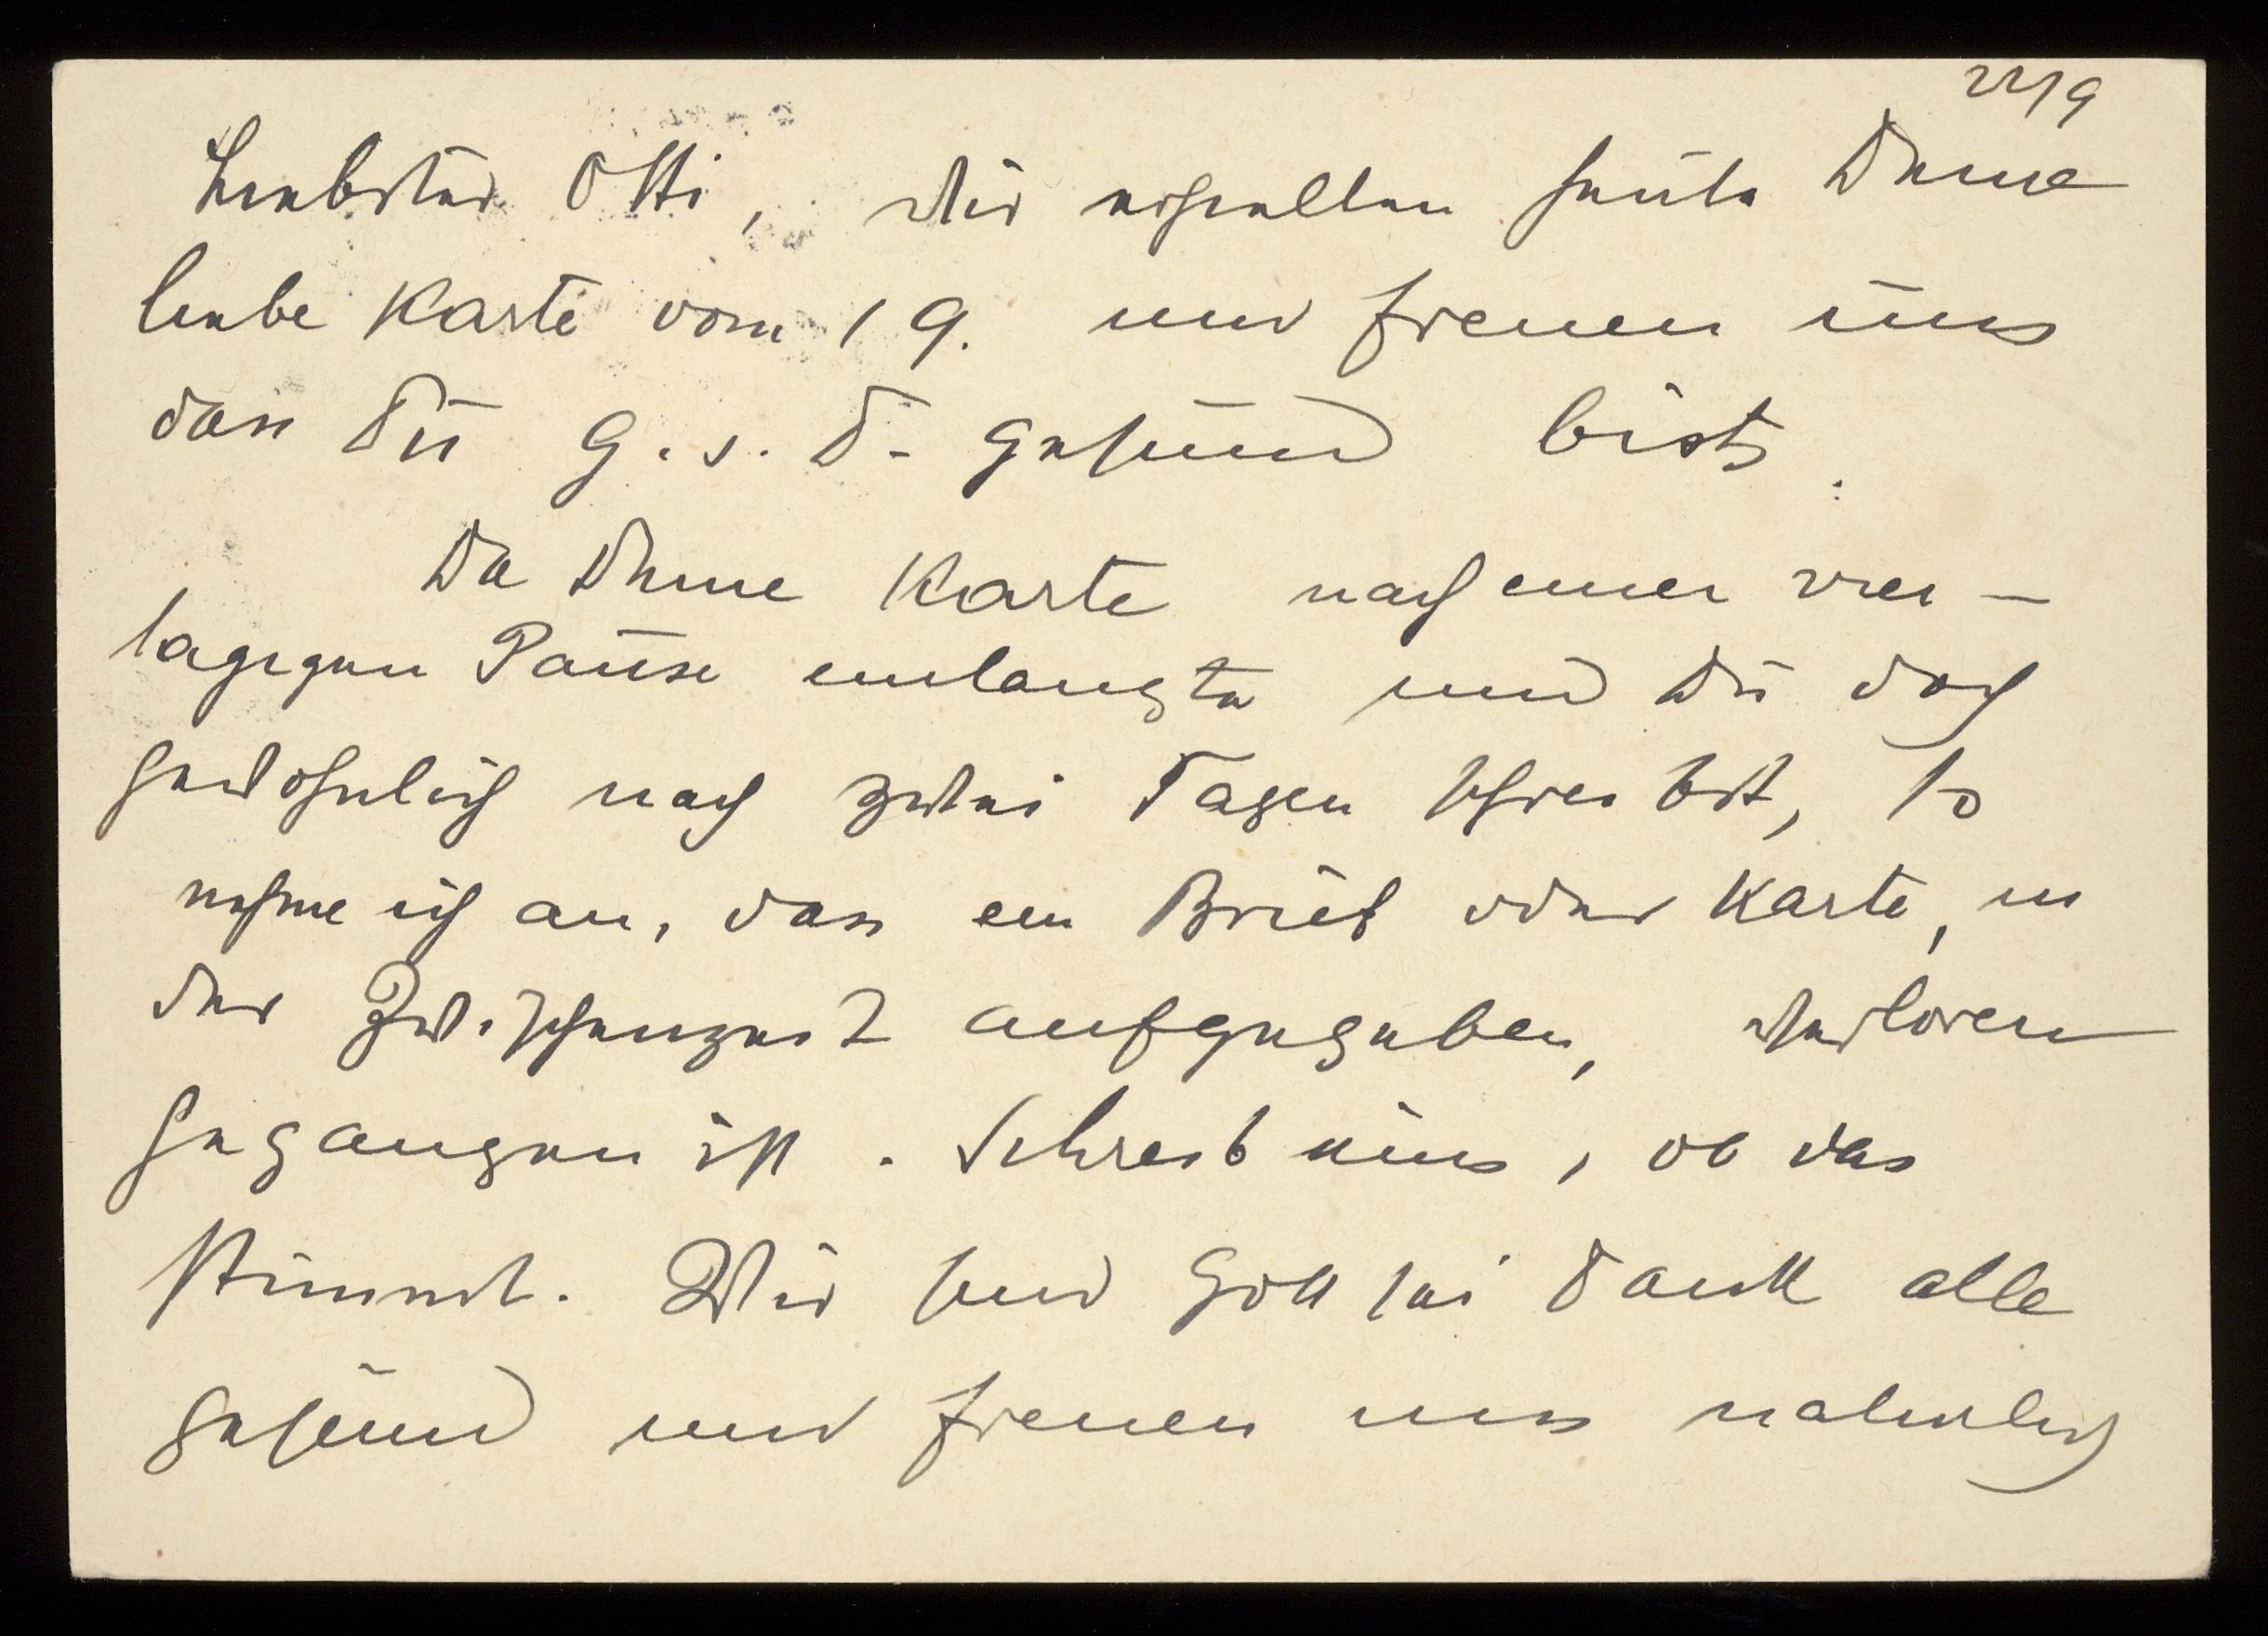 22/9
Liebster Otti, wir erhielten heute Deine
liebe Karte vom 19. und freuen uns
dass Du G. s. D. gesund bist.
Da Deine Karte nach einer vier-
tägigen Pause einlangte und Du doch
gewöhnlich nach zwei Tagen schreibst, so
nehme ich an, dass ein Brief oder Karte, in
der Zwischenzeit aufgegeben, verloren
gegangen ist. Schreib uns, ob das
stimmt. Wir sind Gott sei Dank alle
gesund und freuen uns natürlich